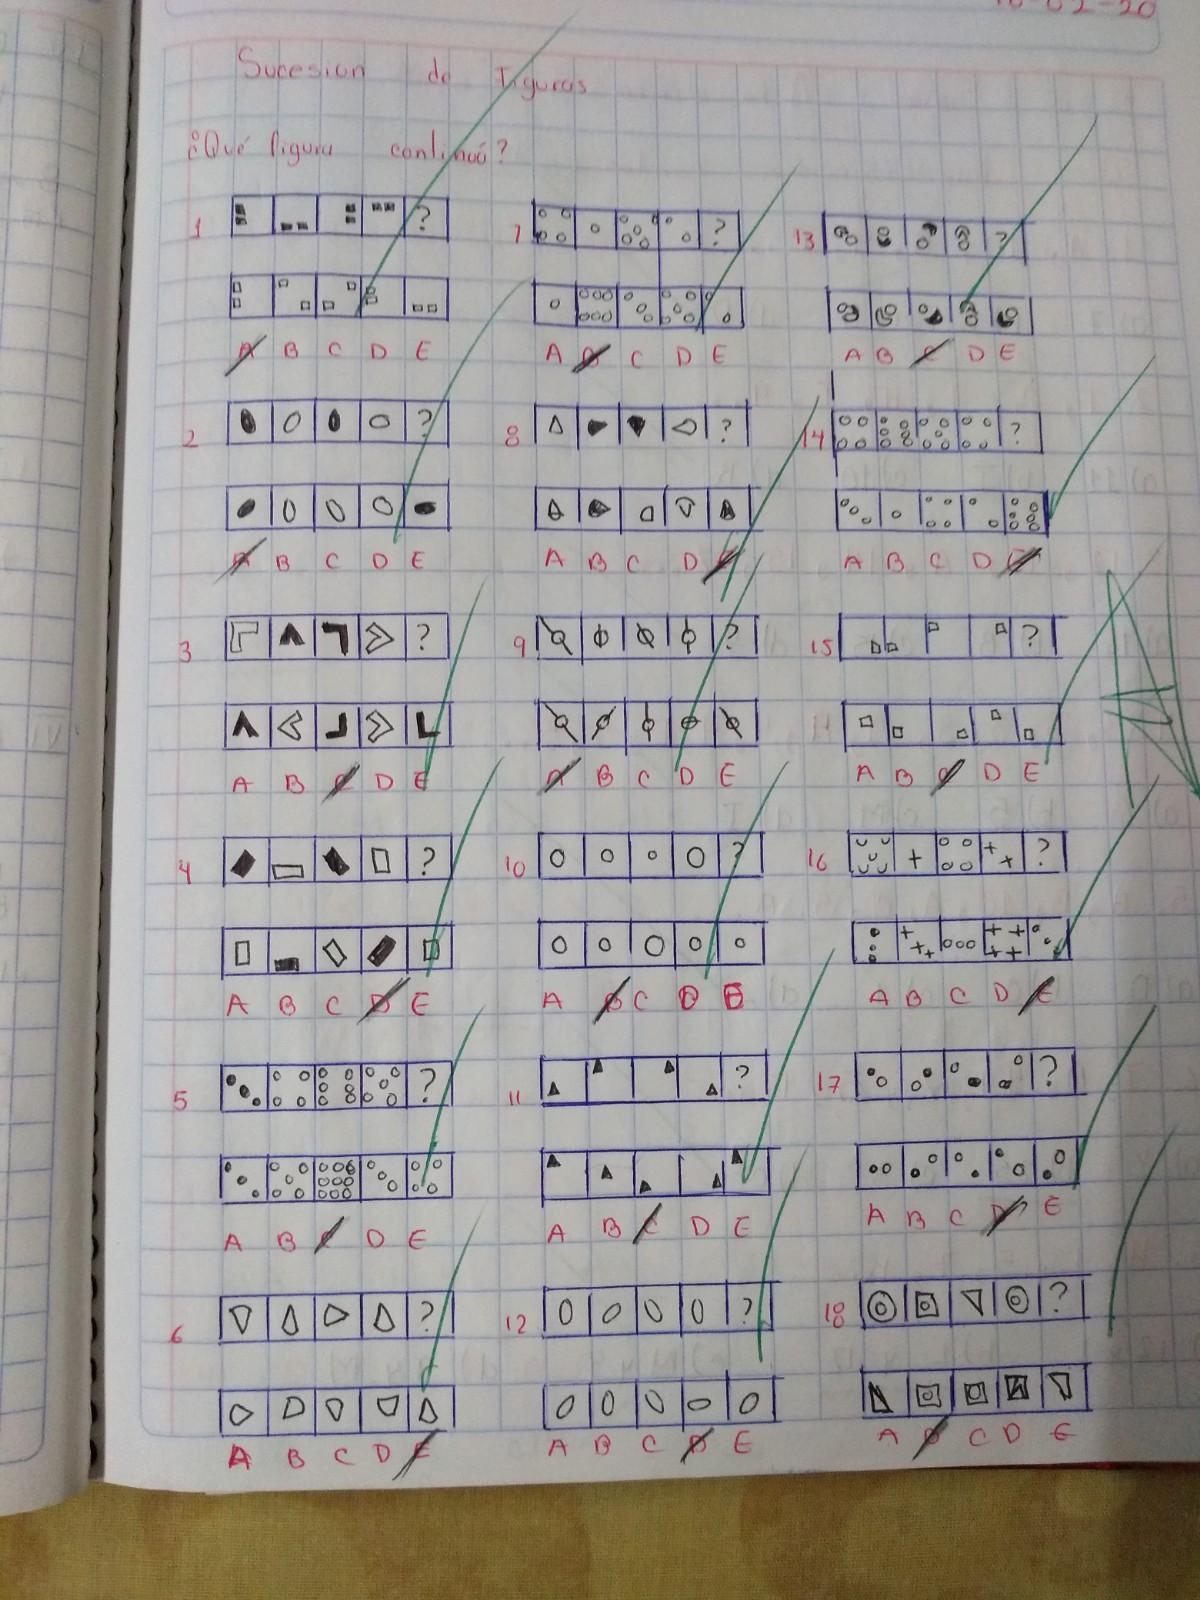 10-02-20
Sucesion de Figuras
¿Qué figura continuó?
1 ?
A B C D E
2 ?
A B C D E
3 ?
A B C D E
4 ?
A B C D E
5 ?
A B C D E
6 ?
A B C D E
7 ?
A B C D E
8 ?
A B C D E
9 ?
A B C D E
10 ?
A B C D E
11 ?
A B C D E
12 ?
A B C D E
13 ?
A B C D E
14 ?
A B C D E
15 ?
A B C D E
16 ?
A B C D E
17 ?
A B C D E
18 ?
A B C D E